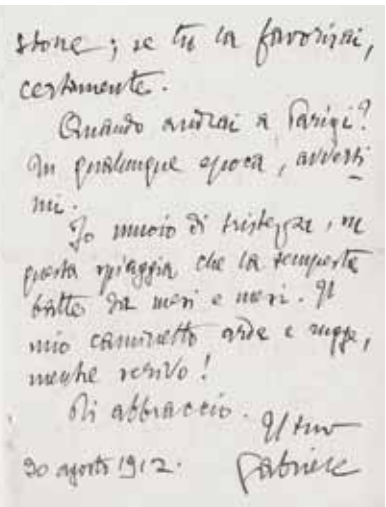 stone; se tu la favorirai,
certamente.
Quando andrai a Parigi?
In qualunque epoca, avverti
mi.
Io muoio di tristezza, in
questa spiaggia che la tempesta
batte da mesi e mesi. Il
mio caminetto arde e rugge,
mentre scrivo!
Ti abbraccio.
Il tuo
30 agosto 1912. Gabriele